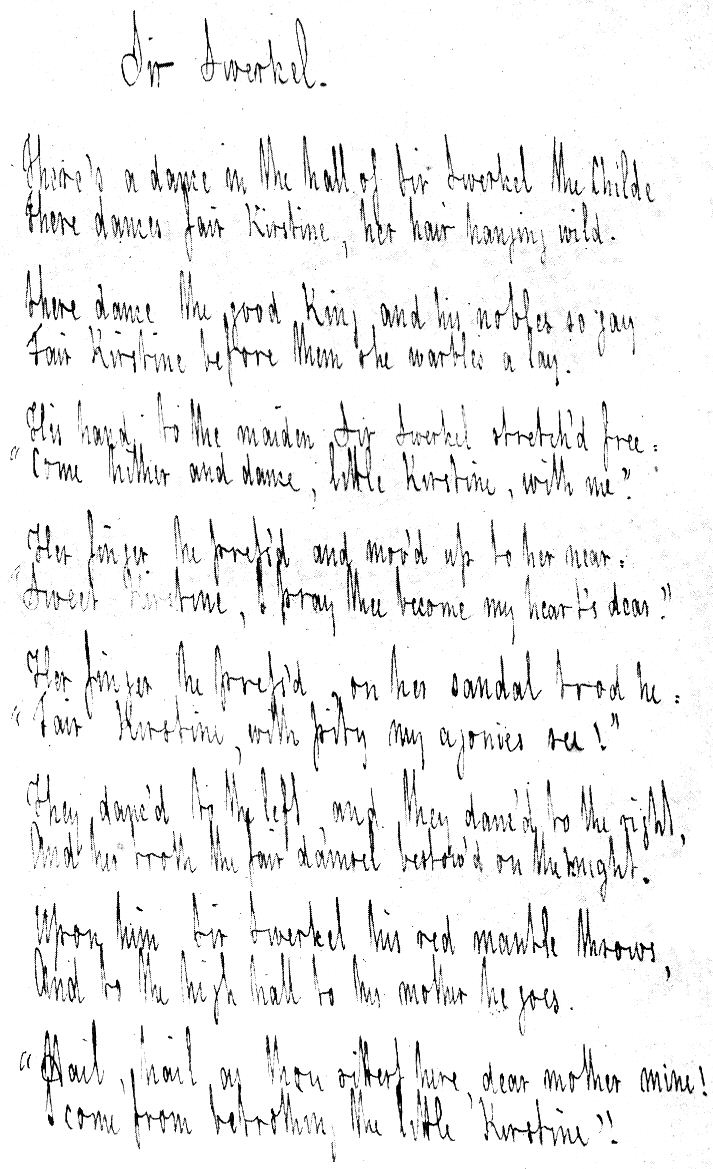 Sir Swerkel.
There's a dance in the hall of Sir Swerkel the Childe
There dances fair Kirstine, her hair hanging wild.
There dance the good King and his nobles so gay
Fair Kirstine before them she warbles a lay.
His hand to the maiden Sir Swerkel stretch'd free:
"Come hither and dance, little Kirstine, with me".
Her finger he press'd and mov'd up to her near:
"Sweet Kirstine, I pray thee become my heart's dear."
Her finger he press'd, on her sandal trod he:
"Fair Kirstine, with pity my agonies see!"
They danc'd to the left and they danc'd to the right,
And her troth the fair damsel bestow'd on the knight.
Upon him Sir Swerkel his red mantle throws,
And to the high hall to his mother he goes.
"Hail, hail, as thou sittest here, dear mother mine!
I come from betrothing the little Kirstine"!